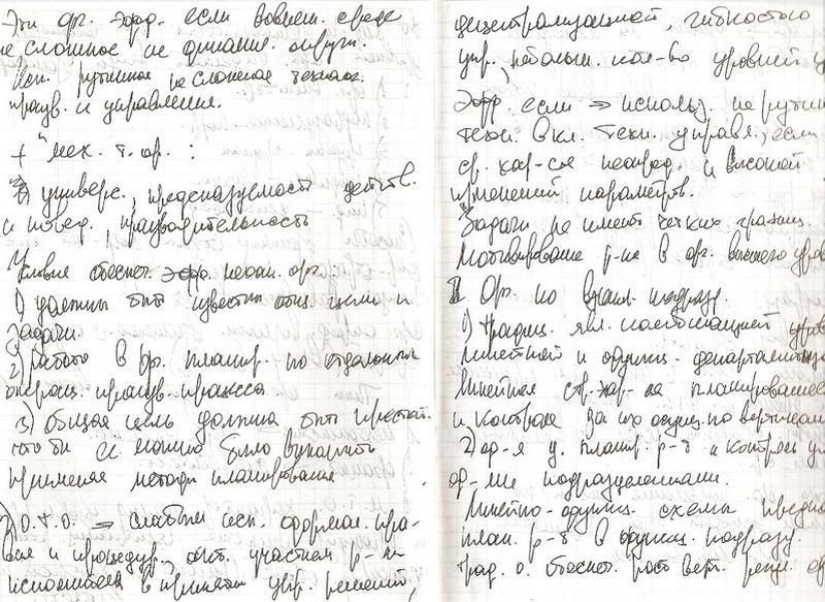 Эти орг. эфф. если во внеш. среде
не сложное не динамич. окруж.
Исп. рутинная не сложная технол.
произв. и управления.
+ "мех. т. ор. :
1) универс., предсказуемость действ.
и повед., производительность
Условия обеспеч. эфф. механ. орг. :
1) должны быть известны общ. цели и
задачи
2) работа в ор. планир. по отдельным
операц. произв. процесса
3) общая цель должна быть простой.
что бы её можно было выполнить
применяя методы планирования
2) О.Т.О. ⇒ слабым исп. формал. пра-
вил и процедур, акт. участием р-ка
исполнителя в принятии упр. решений,
децентрализацией, гибкостью
упр., небольш. кол-во уровней
Эфф. если ⇒ использ. не рутин
техн. вкл. техн. управл., если
ср. хар-ся неопред. и высокой
изменений параметров.
Задачи не имеют четких границ
Мотивирование р-ка в орг. высшего уров
II Ор. по взаим. подразд.
1) Традиц. явл. комбинацией
линейной и функц. департаментиза
Линейная стр. хар-ся планированием
и контроля за их функц. по вертикали
2) планир. р-т и контроль
подразделениями.
Линейно-функц. схемы
план. р-т в функц. подразд.
Трад. о. обеспеч. рост верт.